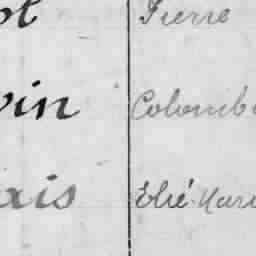 ol Pierre
vin Colomb
ais Elié Mari